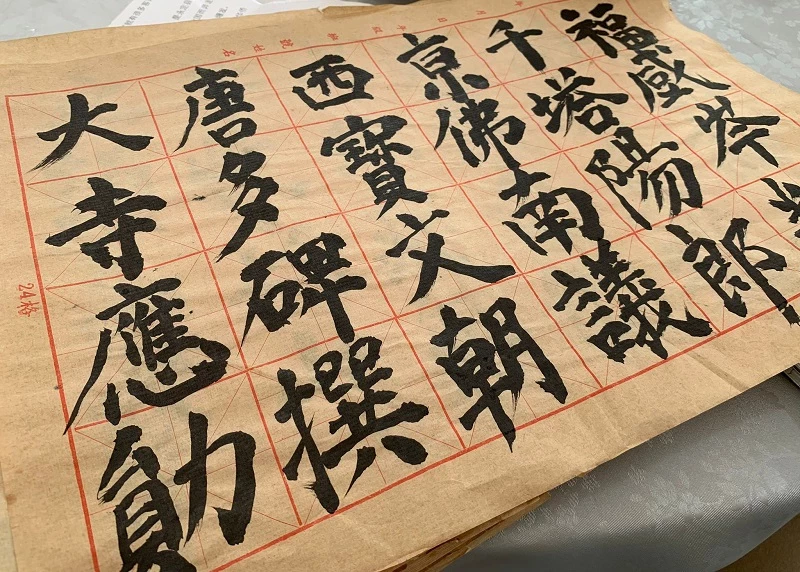 大唐西京千福
寺多寶佛塔感
應碑文南陽岑
勛撰朝議郎
24格